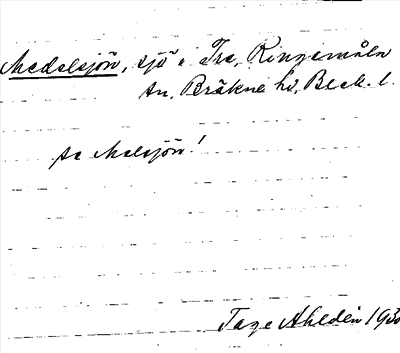 Medelsjön, sjö i Tra, Ringamåla
sn, Bräkne hd, Blek. l.
se Melsjön!
Tage Ahldén 1930